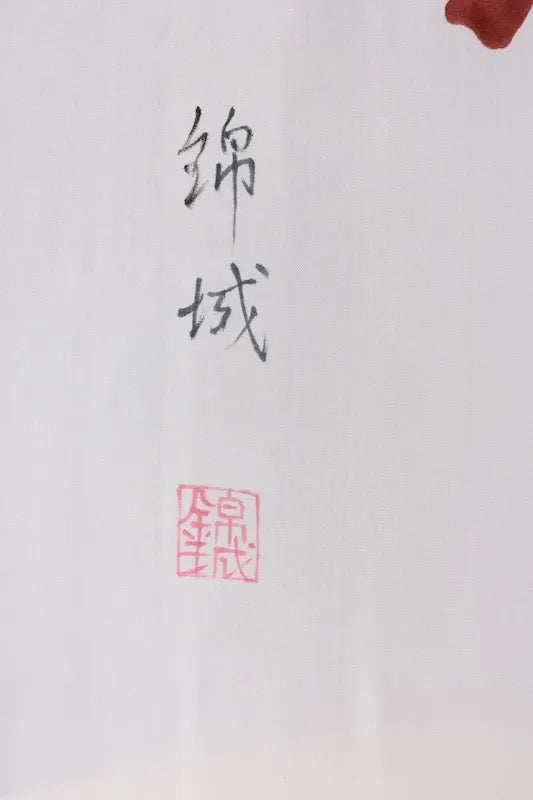 錦
城
錦城